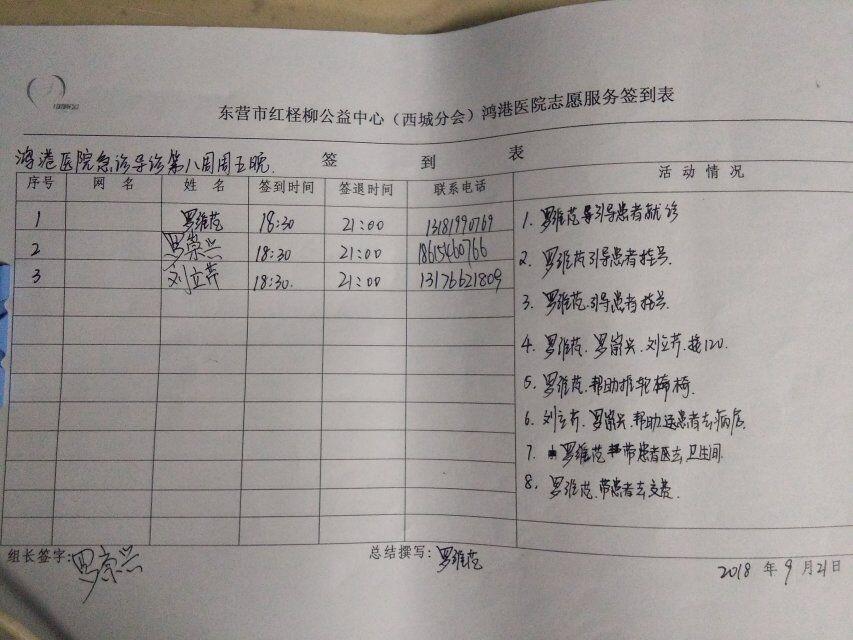 东营市红柽柳公益中心（西城分会）鸿港医院志愿服务签到表
鸿港医院急诊导诊第八周周五晚.
签 到 表
序号 网 名 姓 名 签到时间 签退时间 联系电话 活 动 情 况
1 罗维花 18:30 21:00 13181990769
2 罗崇兴 18:30 21:00 18615460766
3 刘立芹 18:30. 21:00 13176621809
1. 罗维花导引导患者就诊
2. 罗维花引导患者挂号.
3. 罗维花.引导患者挂号.
4. 罗维花.罗崇兴.刘立芹.接120.
5. 罗维花.帮助推轮椅.
6. 刘立芹.罗崇兴.帮助送患者去病房.
7. 罗维花带患者去卫生间
8. 罗维花.带患者去交费.
组长签字: 罗崇兴
总结撰写: 罗维花
2018 年 9 月 21 日